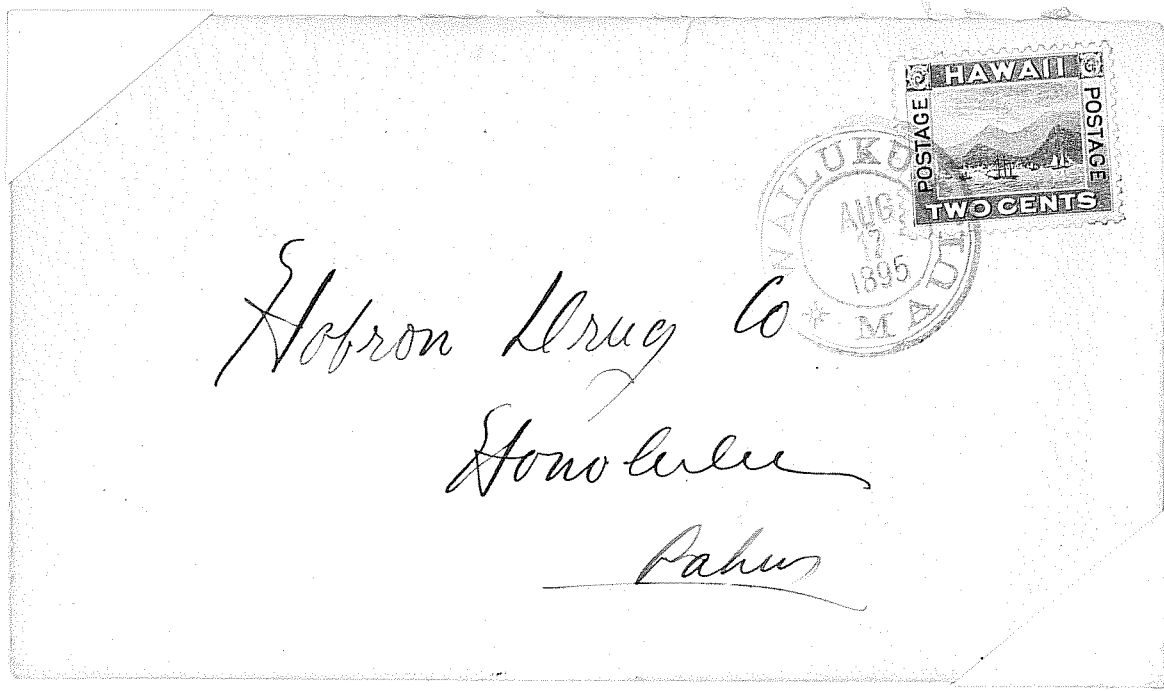 HAWAII
POSTAGE
POSTAGE
TWO CENTS
WAILUKU
AUG
17
1895
* MAUI
Hobron Drug Co
Honolulu
Oahu